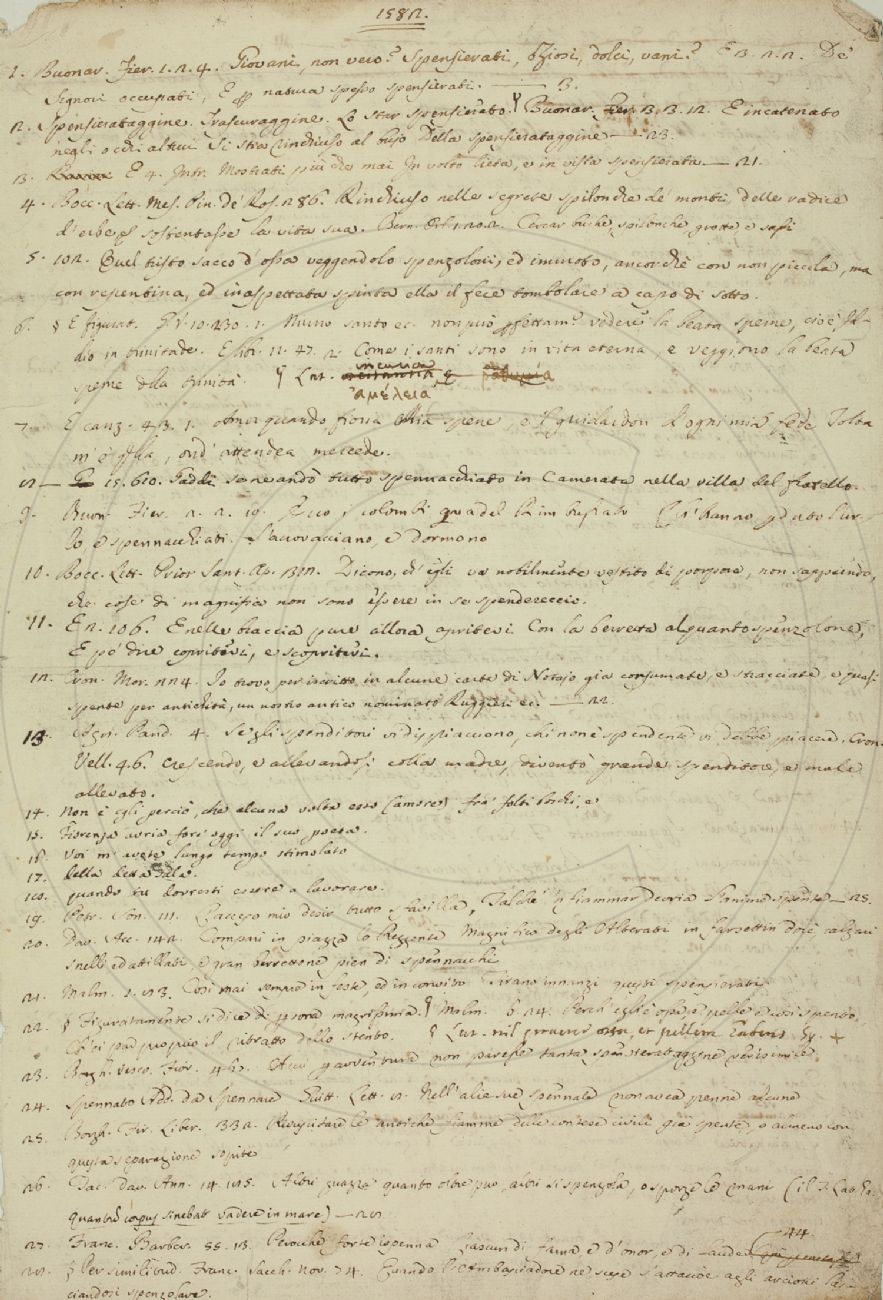 1582.
1. Buonar. Fier. 1. 2. 4. Giovani, non vero? Spensierati, Oziosi, dolci, vani? E 3. 2. 2. De'
Signori occupati, E natura spesso spensierati. — 3.
2. Spensierataggine. Trascuraggine. Lo star spensierato. § Buonar. Fier. 3. 3. 12. E incatenato
negli occhi altrui Si stia rinchiuso al bujo Della spensierataggine — 23.
3. E 4. Intr. Mostrati più che mai In volto lieta, e in vista spensierata. — 21.
4. Bocc. Lett. Mes. Pin. de' Ros. 286. Rinchiuso nelle segrete spilonche de' monti, delle radice
d'erbe sostentasse la vita sua. Bern. Orl. Cercar buche, spilonche, grotte e sassi
5. 102. Quel tristo sacco d'ossa veggendolo spenzoloni, ed immoto, ancorchè con non piccola, ma
con repentina, ed inaspettata spinta ella il fece tombolare a capo di sotto.
6. § E figurat. G. V. 10. 230. 1. Niuno santo ec. non può perfettam. vedere la beata speme, cioè, Id-
dio in trinitade. E lib. 11. 47. 2. Come i santi sono in vita eterna, e veggiono la beata
speme della trinità. § Lat. incuria
ἀμέλεια
7. E canz. 43. 1. Amor quando fioria Mia spene, e 'l guidardon d'ogni mia fede Tolta
m'è quella, ond' attendea mercede.
8. — 15. 610. Taddi se ne andò tutto spennacchiato in Camerata nella villa del fratello.
9. Buon. Fier. 2. 2. 19. Ecco i colombi qua del Ch' hanno perduto l'ur-
lo, e spennacchiati S'accovacciano, e dormono
10. Bocc. Lett. Prior Sant. Ap. 312. Dicono, ch' egli va nobilmente vestito di porpore, non sappiendo,
che cose di magnifico non sono essere in se spendereccio.
11. E 2. 106. E nelle braccia pure allora apritevi Con la berretta alquanto spenzolone,
E po' dire copritevi, e scopritevi.
12. Cron. Mor. 224. Io trovo per iscritto in alcune carte di Notajo già consumate, e stracciate, e quasi
spente per antichità, un nostro antico nominato Ruggieri ec. — 22.
13. Agn. Pand. 4. Se gli spenditori vi dispiacciono, chi non è spendente vi debbe piacere. Cron.
Vell. 46. Crescendo, e allevandosi colla madre, diventò grande spenditore, e male
allevato.
14. Non è egli perciò, che alcuna volta esso (amore) fra' folti boschi, e
15. Fiorenza avria forse oggi il suo poeta.
16. Voi m' avete lungo tempo stimolato
17. della detta sala.
18. quando tu dovresti essere a lavorare.
19. Petr. Son. 111. L'acceso mio desir tutto sfavilla, Talchè 'nfiammar devria l'anime spente — 25.
20. Dav. Acc. 142. Compari in piazza lo Reggente Magnifico degli Alterati in farsettin dorè, calzari
snelli ed attillati, e gran berrettone pien di spennacchi
21. Malm. 1. 83. Così mai sempre in feste, ed in convito Tirano innanzi questi spensierati
22. § Figuratamente si dice di persona magrissima. § Malm. 6. 24. Perch' egli è ossa e pelle, e così spento,
Ch' ei par proprio il ritratto dello stento. § Lat. nil praeter ossa, et pellem habens. +
23. Borgh. Vesc. Fior. 467. Acciò per avventura non paresse tanta spensierataggine verisimile
24. Spennato Add. da Spennare Guitt. Lett. 8. Nell' alie sue spennate non avea penne alcune
25. Borgh. Fir. Liber. 332. Resuscitare le antiche fiamme delle contese civili già spente, o almeno con
questa separazione sopite
26. Tac. Dav. Ann. 14. 185. Altri guazza quanto oltre può, altri si spenzola, o sporge le mani (il T. Lat. ha
quantum corpus sinebat vadere in mare) — 28.
44.
27. Franc. Barber. 55. 13. Perocchè forte spenna Ciascun di fama e d'onor, e di laude
28. § Per similitud. Franc. Sacch. Nov. 74. Quando l'Ambasciadore ne scese s'attaccòe agli arcioni las-
ciandosi spenzolare.